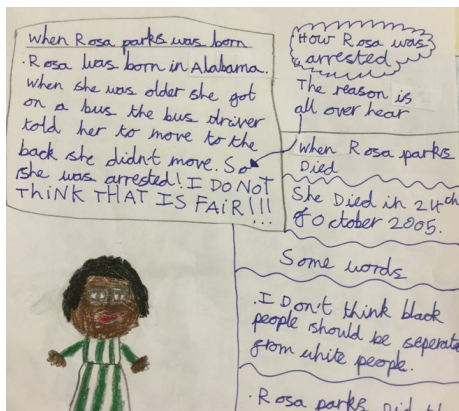 when Rosa parks was born
. Rosa was born in Alabama.
when she was older she got
on a bus the bus driver
told her to move to the
back she didn't move. So
she was arrested! I DO NOT
THiNK THAT IS FAiR!!!
How Rosa was
arrested
The reason is
all over hear
when Rosa parks
Died
She Died in 24th
of October 2005.
Some words
. I Don't think black
people should be seperate
from white people.
. Rosa parks Did th